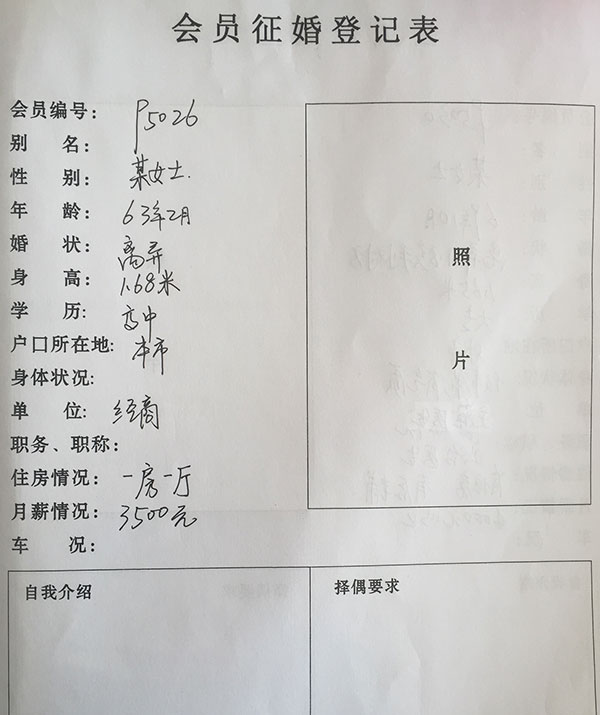 会员征婚登记表
会员编号: P5026
别 名:
性 别: 某女士.
年 龄: 63年2月
婚 状: 离异
身 高: 1.68米
学 历: 高中
户口所在地: 本市
身体状况:
单 位: 经商
职务、职称:
住房情况: 一房一厅
月薪情况: 3500元
车 况:
照
片
自我介绍
择偶要求